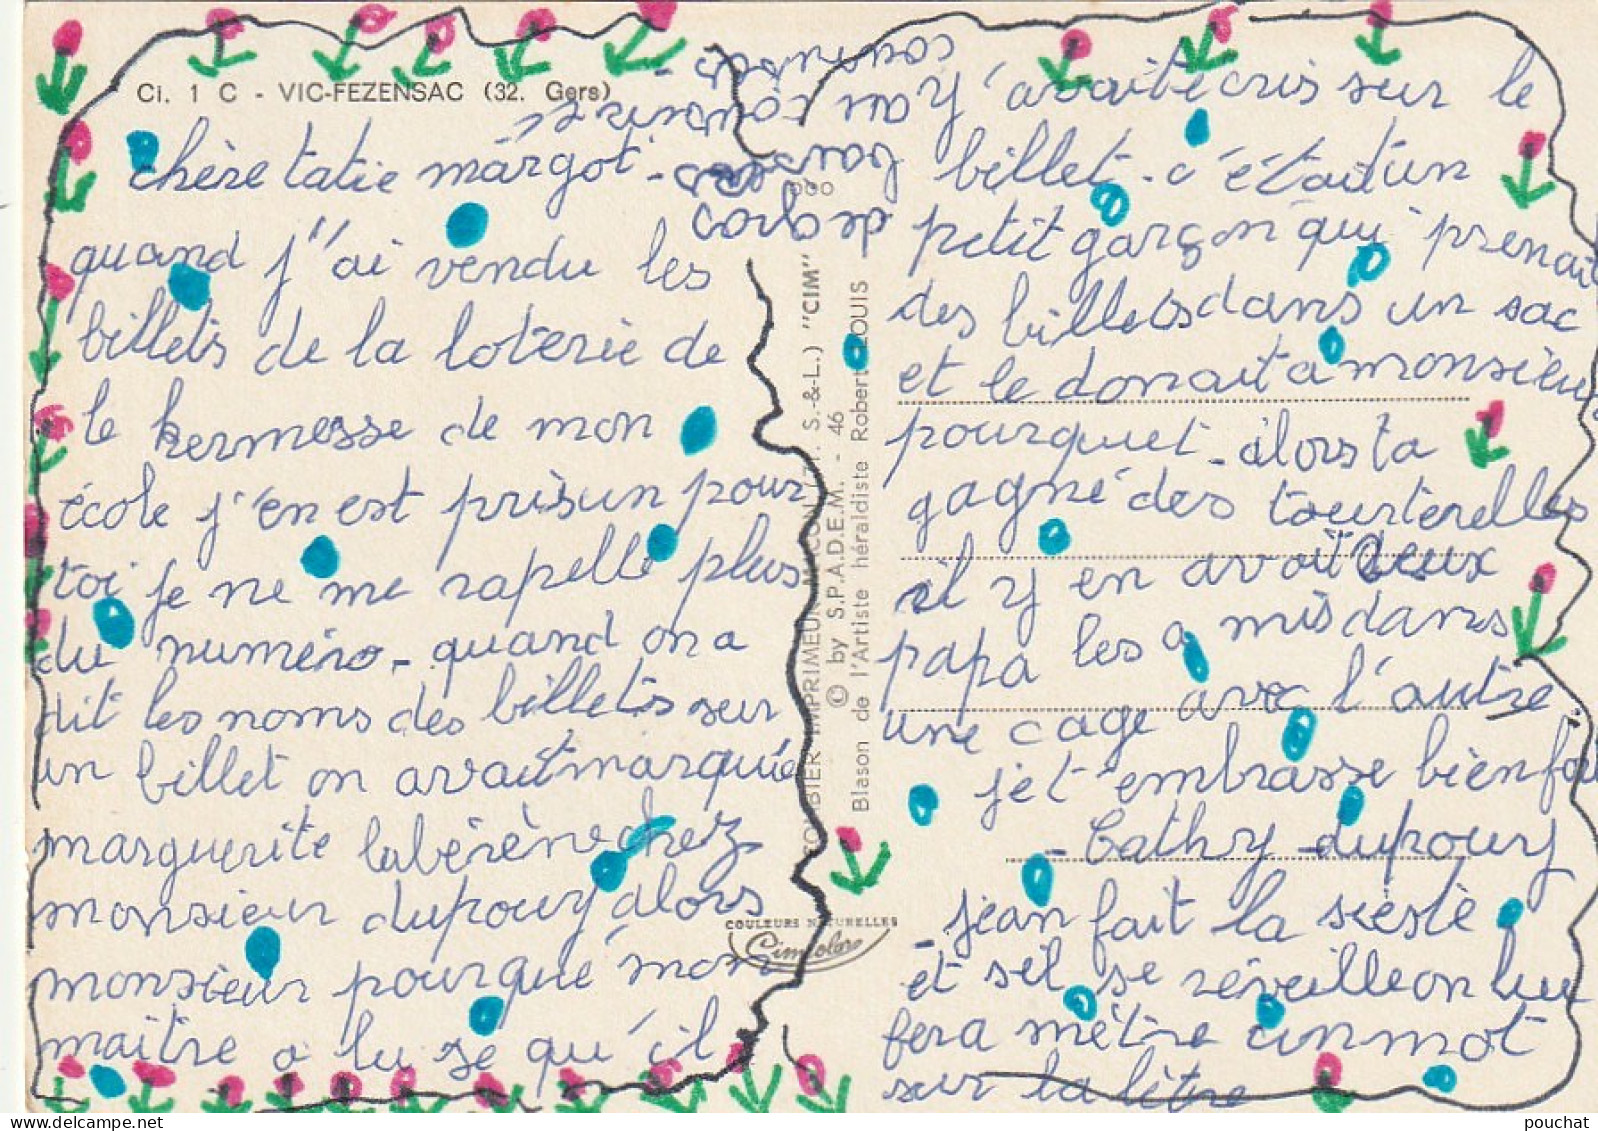 Ci. 1 C - VIC-FEZENSAC (32. Gers)
chère tatie margot.
quand j'ai vendu les
billets de la loterie de
le kermesse de mon
école j'en est prisun pour
toi je ne me rapelle plus
du numéro - quand on a
dit les noms des billets sur
un billet on avait marquée
marguerite labérène chez
monsieur dupouy alors
monsieur pourqué mon
maître a lu se qu'il
Y' avait écris sur le
billet - c'était un
petit garçon qui prenait
des billets dans un sac
et le donait a monsieur
pourquet - alors ta
gagné des tourterelles
il y en avait deux
papa les a mis dans
une cage avec l'autre
je t'embrasse bien fort
- Cathy dupouy
- jean fait la sieste
et s'il se réveille on lui
fera mètre un mot
sur la lètre
de gros
baisers
au
cousins
COMBIER IMPRIMEUR MACON (71. S.-&-L.) "CIM"
© by S.P.A.D.E.M. - 46
Blason de l'Artiste héraldiste Robert LOUIS
COULEURS NATURELLES
Cimcolor
pouchat